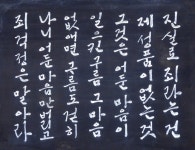 진실로 죄라는 건
제 성품이 없는 것
그것은 어둔 마음이
일으킨 구름 그 마음
없애면 구름도 걷히
나니 어둔 마음만 밝히고
죄 걱정은 말아라